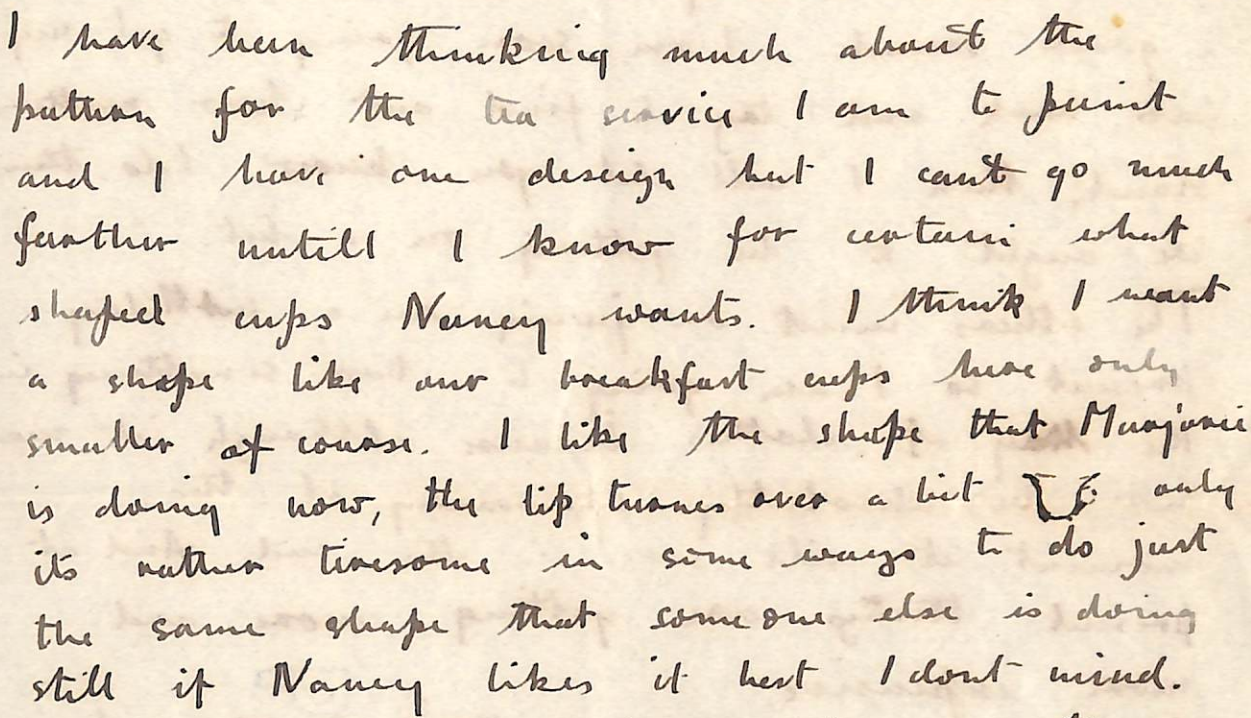 I have been thinking much about the
pattern for the tea service I am to paint
and I have one deseign but I cant go much
farther untill I know for certain what
shaped cups Nancy wants. I think I want
a shape like our breakfast cups here only
smaller of course. I like the shape that Marjorie
is doing now, the lip turnes over a bit only
its rather tiresome in some ways to do just
the same shape that someone else is doing
still if Nancy likes it best I dont mind.